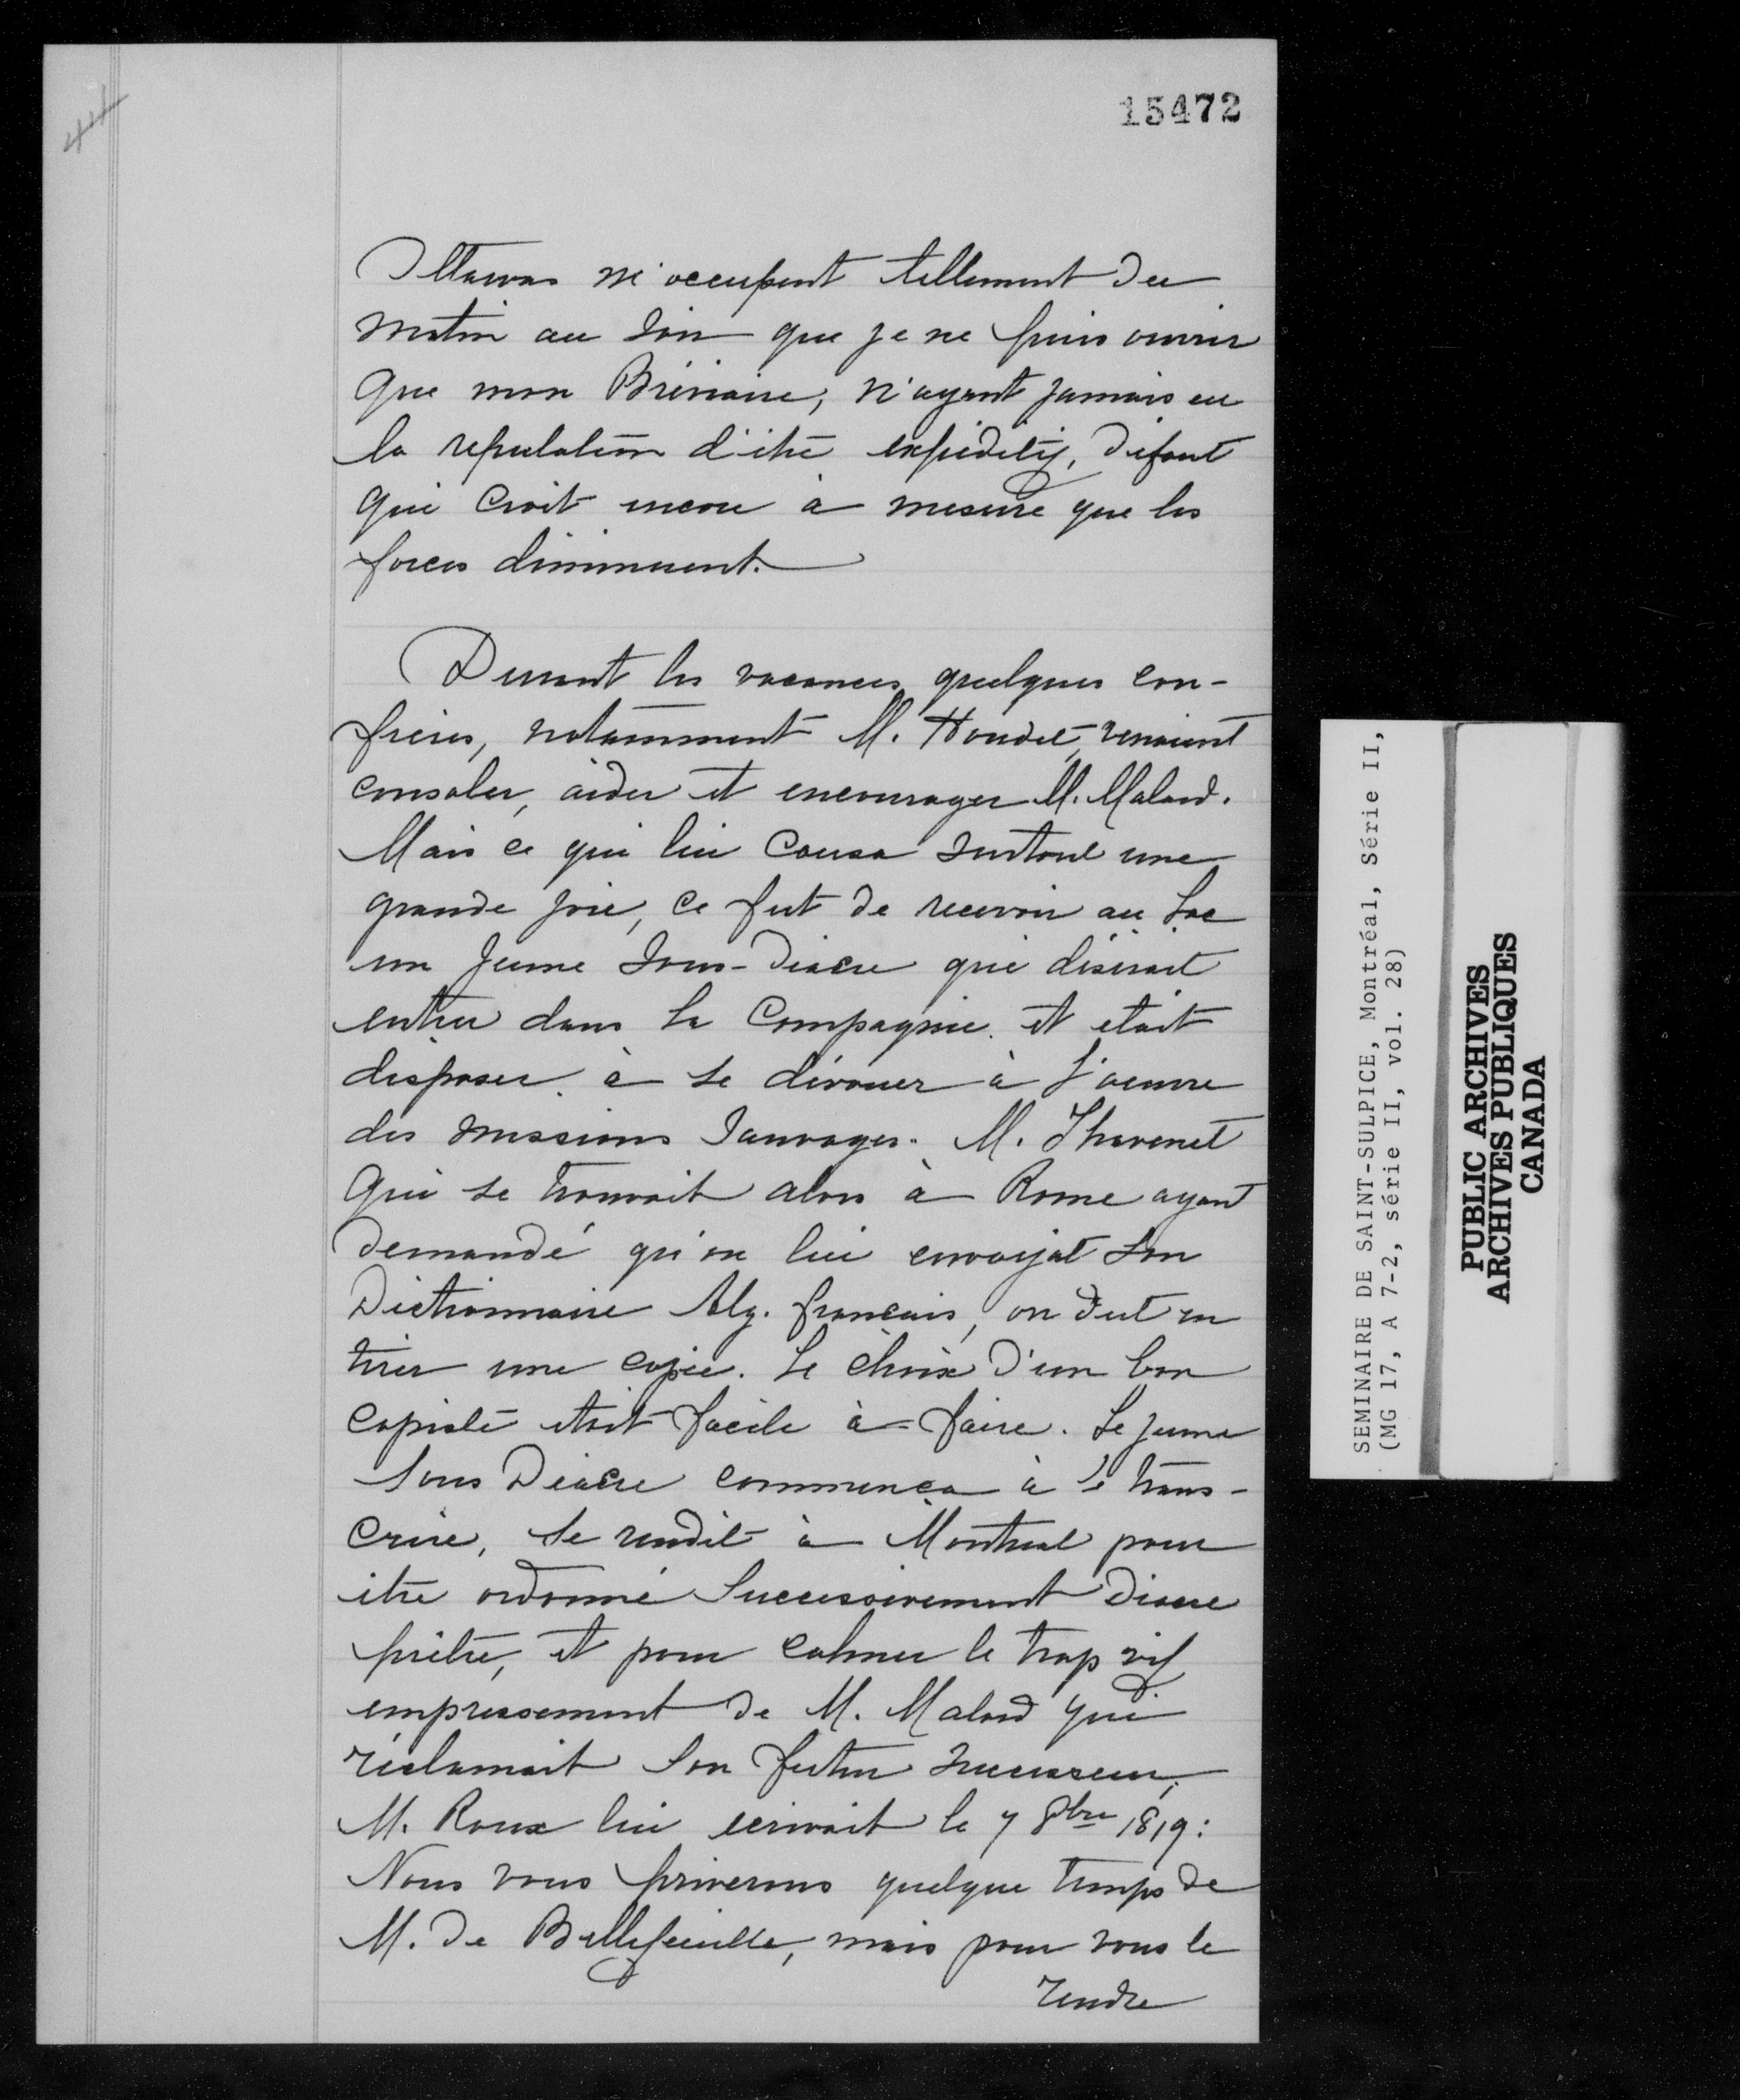 15472
Ottawas m'occupent tellement du
matin au soir que je ne puis ouvrir
que mon Bréviaire, n'ayant jamais eu
la reputation d'être expéditif, défaut
qui croit encore à mesure que les
forces diminuent.
Durant les vacances quelques con-
frères, notamment M. Houdet, venaient
consoler, aider et encourager M. Malard.
Mais ce qui lui causa surtout une
grande joie, ce fut de recevoir au Lac
un jeune Sous-Diacre qui désirait
entrer dans la Compagnie et etait
disposer à se dévouer à l'oeuvre
des missions Sauvages. M. Thavenet
qui se trouvait alors à Rome ayant
demandé qu'on lui envoyat son
Dictionnaire Alg. français, on dut en
tirer une copie. Le choix d'un bon
copiste était facile à faire. Le jeune
Sous Diacre commença à le trans-
crire, se rendit à Montreal pour
être ordonné successivement Diacre
prêtre, et pour calmer le trop vif
empressement de M. Malard qui
réclamait son futur successeur,
M. Roux lui ecrivait le 7 8bre 1819:
Nous vous priverons quelque temps de
M. de Bellefeuille, mais pour vous le
rendre
SEMINAIRE DE SAINT-SULPICE, Montréal, Série II,
(MG 17, A 7-2, série II, vol. 28)
PUBLIC ARCHIVES
ARCHIVES PUBLIQUES
CANADA